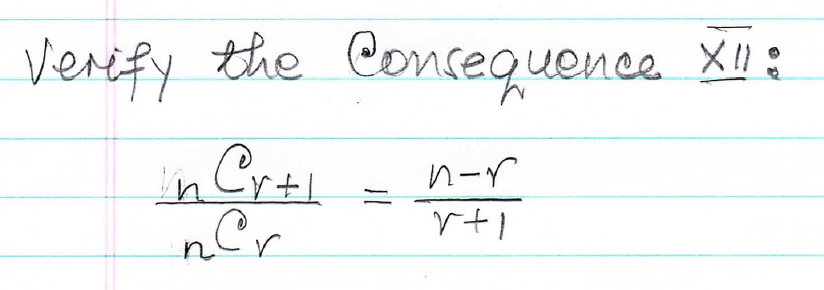 Verify the Consequence XII:
nCr+1 / nCr = n-r / r+1